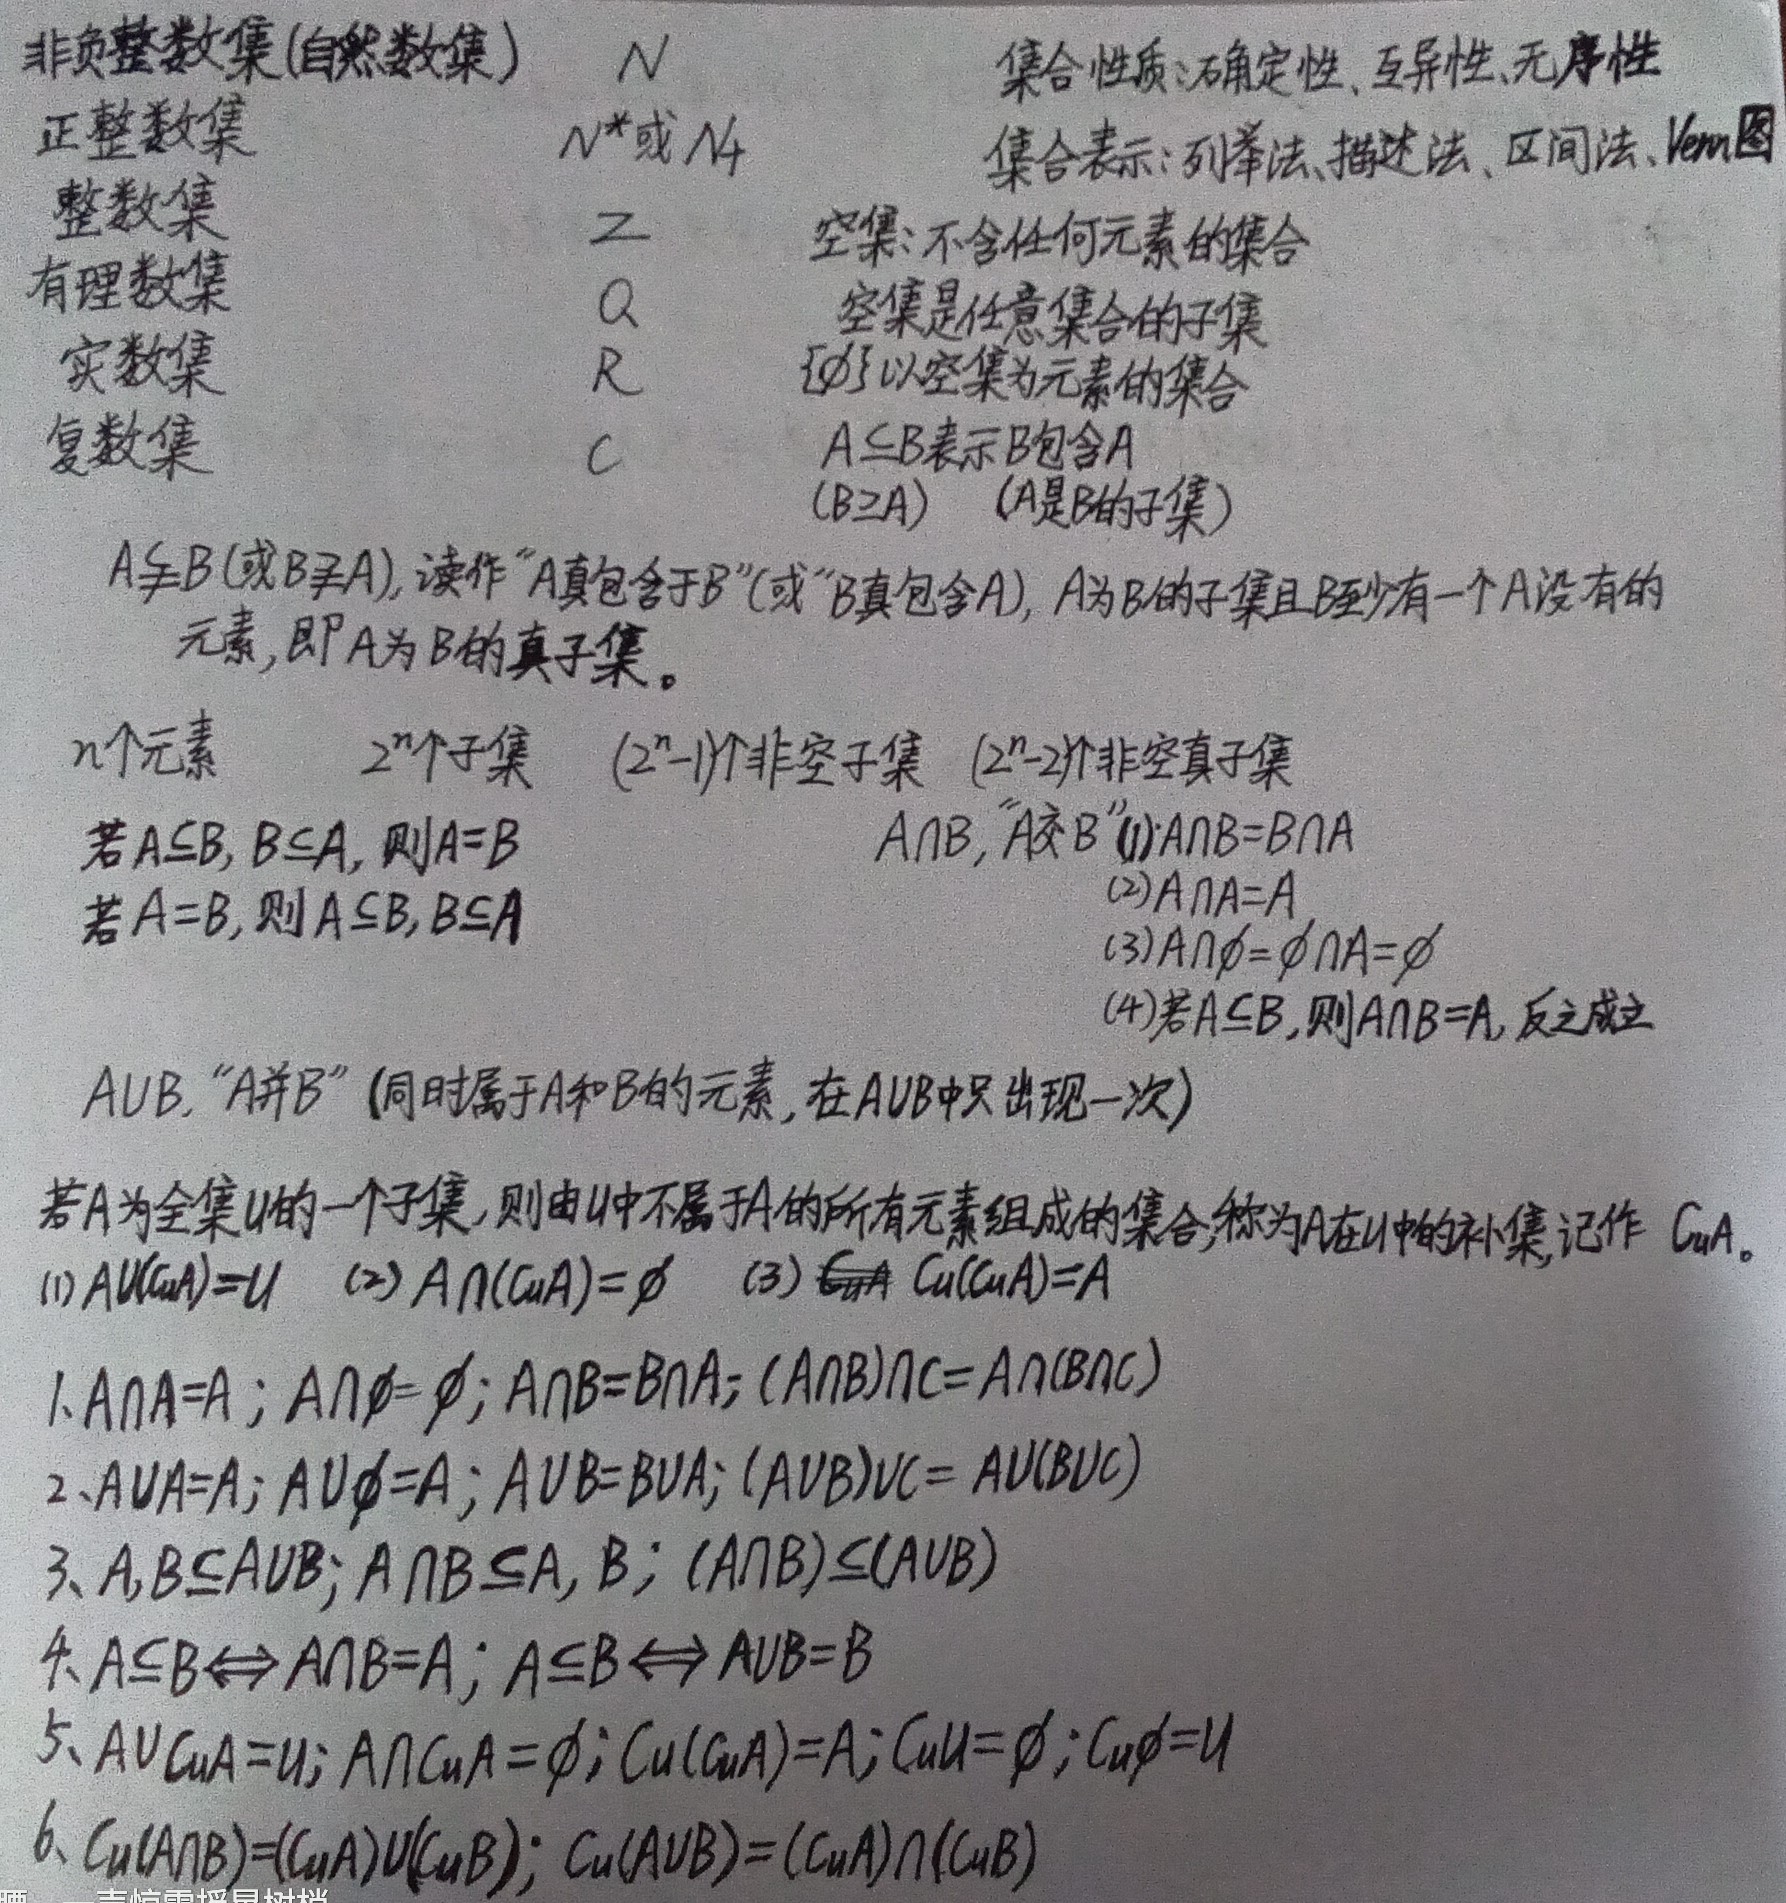 非负整数集(自然数集) N 集合性质:确定性、互异性、无序性
正整数集 N*或 N+ 集合表示:列举法、描述法、区间法、Venn图
整数集 Z 空集:不含任何元素的集合
有理数集 Q 空集是任意集合的子集
实数集 R {∅}以空集为元素的集合
复数集 C A⊆B表示B包含A
(B⊇A) (A是B的子集)
A⫋B(或B⫌A),读作“A真包含于B”(或“B真包含A),A为B的子集且B至少有一个A没有的
元素,即A为B的真子集。
n个元素 2ⁿ个子集 (2ⁿ-1)个非空子集 (2ⁿ-2)个非空真子集
若A⊆B, B⊆A, 则A=B A∩B,“A交B”(1)A∩B=B∩A
(2)A∩A=A
若A=B,则A⊆B,B⊆A
(3)A∩∅=∅∩A=∅
(4)若A⊆B,则A∩B=A,反之成立
A∪B,“A并B”(同时属于A和B的元素,在A∪B中只出现一次)
若A为全集U的一个子集,则由U中不属于A的所有元素组成的集合,称为A在U中的补集,记作 ∁ᵤA。
(1)A∪(∁ᵤA)=U (2)A∩(∁ᵤA)=∅ (3)∁ᵤ(∁ᵤA)=A
1、A∩A=A;A∩∅=∅;A∩B=B∩A;(A∩B)∩C=A∩(B∩C)
2、A∪A=A;A∪∅=A;A∪B=B∪A;(A∪B)∪C=A∪(B∪C)
3、A,B⊆A∪B;A∩B⊆A,B;(A∩B)⊆(A∪B)
4、A⊆B⟺A∩B=A;A⊆B⟺A∪B=B
5、A∪∁ᵤA=U;A∩∁ᵤA=∅;∁ᵤ(∁ᵤA)=A;∁ᵤU=∅;∁ᵤ∅=U
6、∁ᵤ(A∩B)=(∁ᵤA)∪(∁ᵤB);∁ᵤ(A∪B)=(∁ᵤA)∩(∁ᵤB)